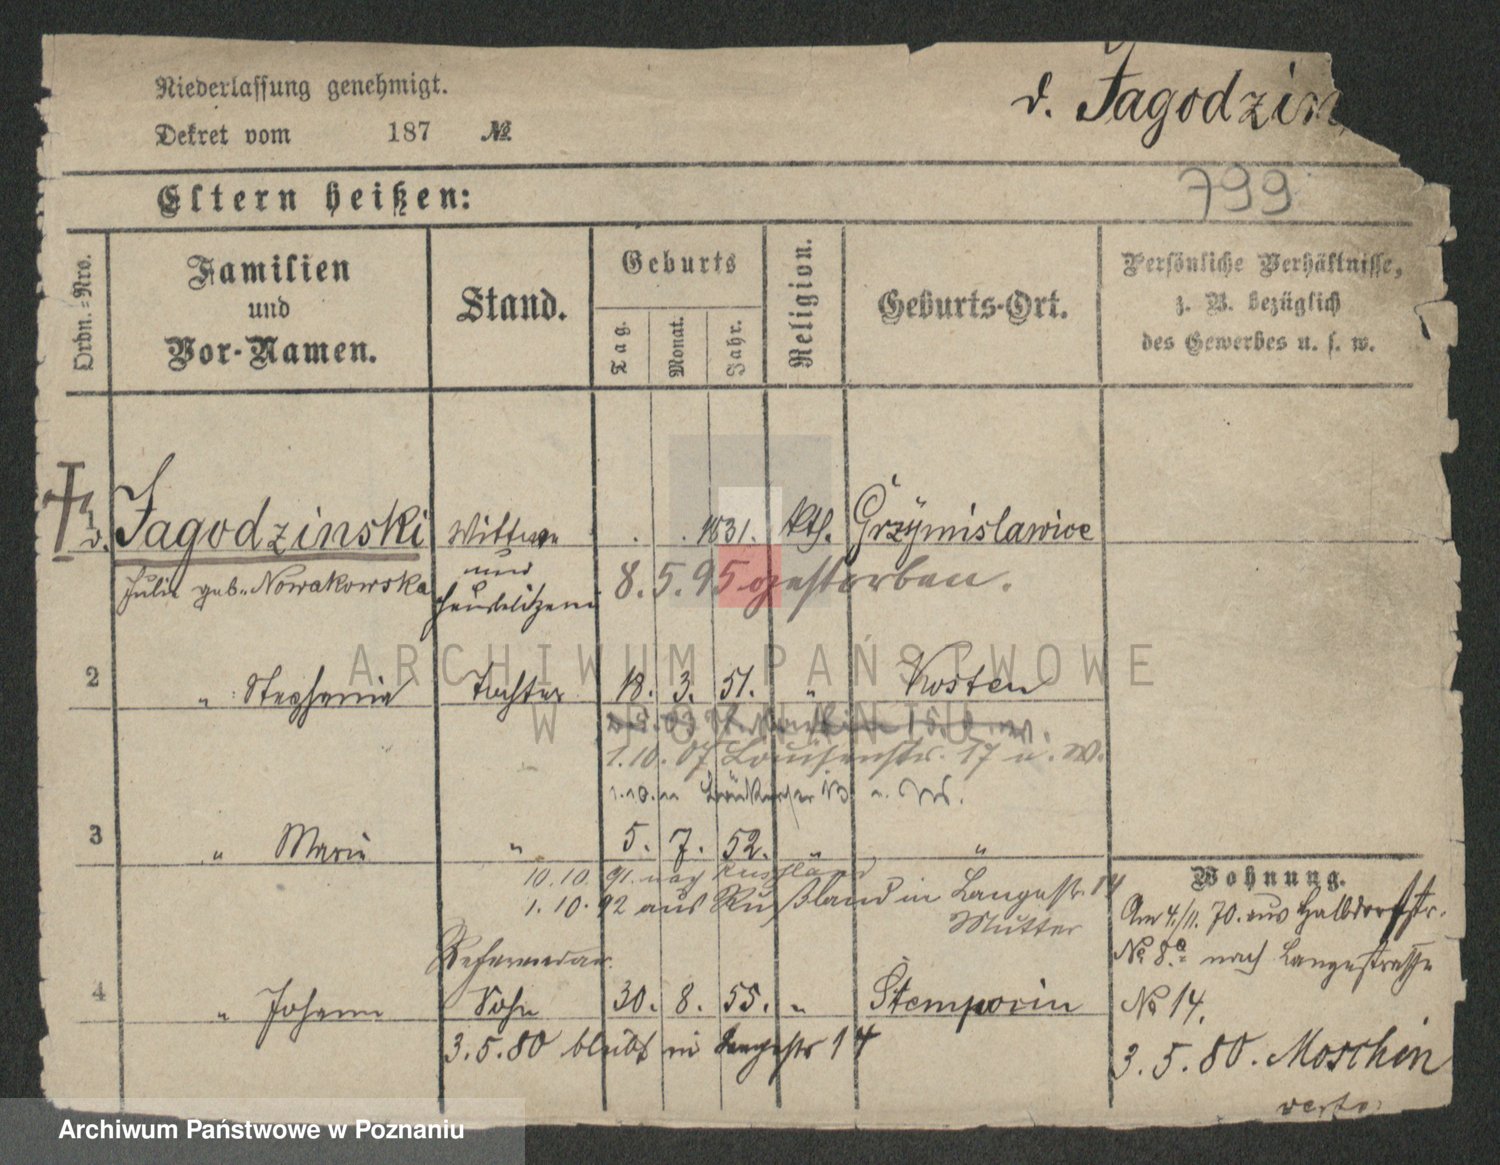 Niederlassung genehmigt.
Dekret vom 187 №
d. Jagodzin
799
Eltern heißen:
Ordn.-Nro.
Familien
und
Vor-Namen.
Stand.
Geburts
Tag.
Monat.
Jahr.
Religion.
Geburts-Ort.
Persönliche Verhältnisse,
z. B. bezüglich
des Gewerbes u. s. w.
1 d. Jagodzinski Wittwe . . 1831. kth. Grzymislawice
Julie geb. Nowakowska und Hausbesitzerin 8.5.95 gestorben.
ARCHIWUM PAŃSTWOWE
W POZNANIU
2 " Stephania Tochter 18. 3. 51. " Kosten
1.10.07 Louisenstr. 17 u. W.
3 " Marie " 5. 7. 52. " "
10.10.91. nach Russland
1.10.92 aus Rußland in Langestr. 14
Mutter
Referendar.
4 " Johann Sohn 30. 8. 55. "
3.5.80 bleibt in Langestr 14
Wohnung.
Am 4./11. 70. aus Halbdorfstr.
No 8.a nach Langestraße
No 14.
3.5.80. Moschin
verto
Archiwum Państwowe w Poznaniu